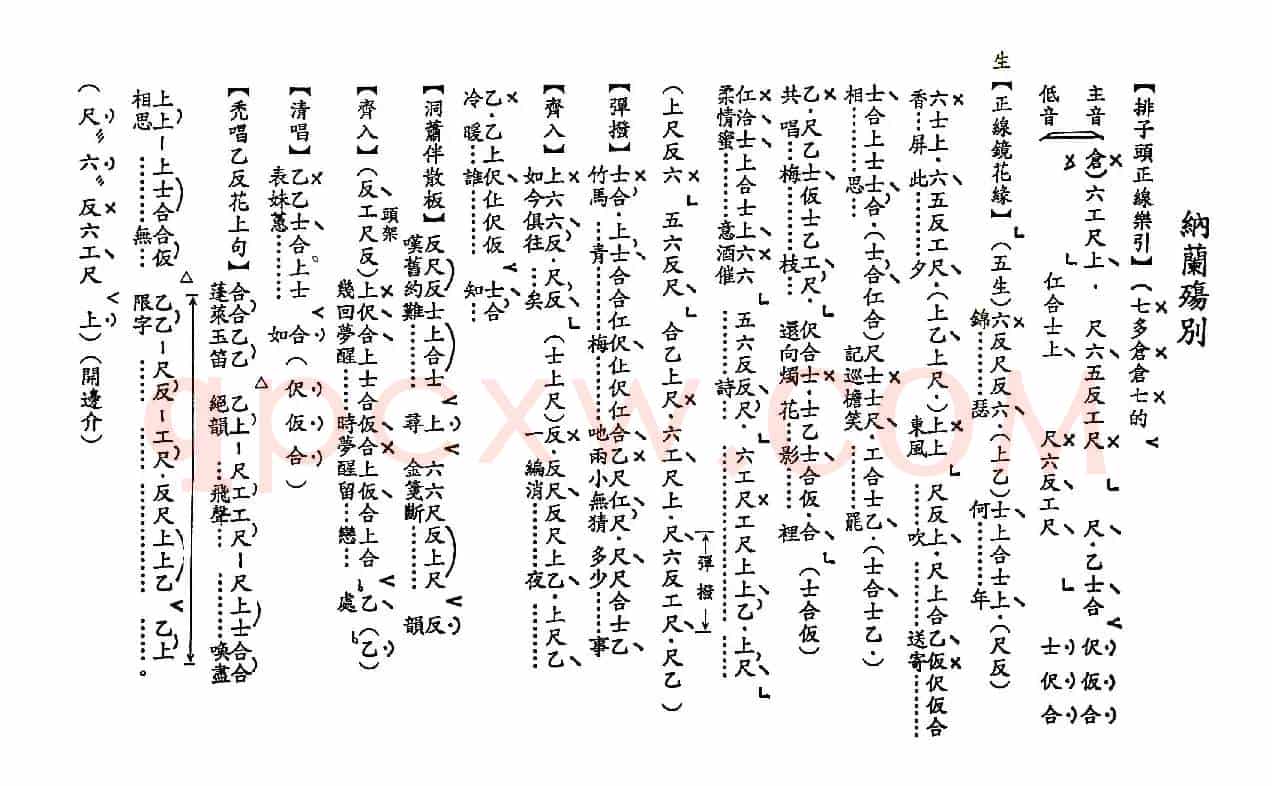 納蘭殤別
【排子頭正線樂引】（七多倉倉士的
主音 倉）六工尺上．尺六五反工尺 尺．乙士合 伬仮合
低音 仁合士上 尺六反工尺 士伬合
生【正線鏡花緣】（五生）六反尺反六．（上乙）士上合士上．（尺反）
錦瑟 何年
六士上．六五反工尺．（上乙上尺．）上上 尺反上．尺上合乙仮伬仮合
香屏此夕 東風吹送寄
士合上士士合．（士合仁合）尺士士尺．工合士乙．（士合士乙．）
相思 記巡檐笑罷
乙．尺乙士仮士乙工尺．伬合士．士乙士合仮．合（士合仮）
共唱梅枝 還向燭花影裡
仁洽士上合士上六六 五六反反尺．六工尺工尺上上乙．上尺
柔情蜜意酒催詩
（上尺反六 五六反尺 合乙上尺．六工尺上．尺六反工尺．尺乙）
彈撥
【彈撥】士合．上士合合仁伬仩伬仁合乙尺仁尺．尺尺合士乙
竹馬青梅吔兩小無猜多少事
【齊入】上六六反．尺反（士上尺）反．反尺反尺上乙．上尺乙
如今俱往矣 一編消夜
乙．乙上伬仩伬仮 士合
冷暖誰知
【洞蕭伴散板】反尺反士上合士 上 六六尺反上尺 反
嘆舊約難尋 金箋斷韻
【齊入】頭架（反工尺反）上伬合上士合仮合上仮合上合 乙（乙）
幾回夢醒時夢醒留戀處
【清唱】乙乙士合上士 合（伬仮合）
表妹蕙如
【禿唱乙反花上句】合合乙乙 乙上－尺工工尺－尺上士合合
蓬萊玉笛 絕韻飛聲 喚盡
上上－上士合合仮 乙乙－尺反－工尺．反尺上上乙 乙上
相思無限字。
（尺〃六〃反六工尺 上）（開邊介）
gpcxw.com